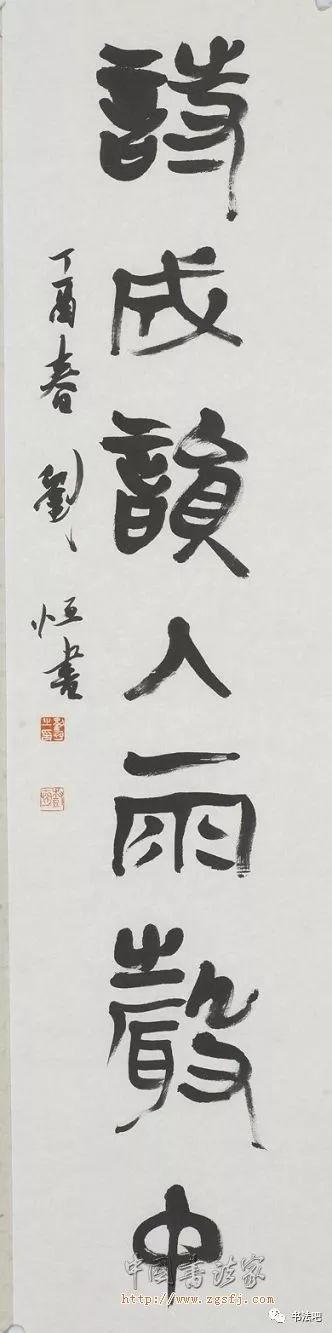 詩成韻入雨聲中
丁酉春 劉恒書
中国书法家
http://www.zgsfj.com
书法吧